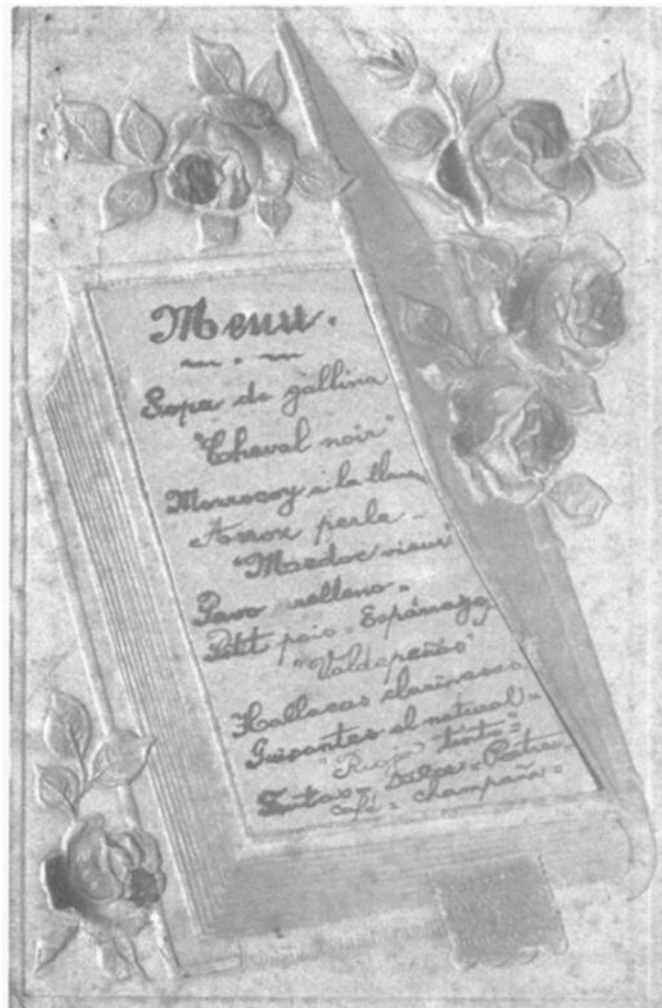 Menu.
Sopa de gallina
"Cheval noir"
Morrocoy a la
Arroz perla -
"Maedoc vieux"
Pavo relleno -
Petit pois - Espárragos
"Valdepeñas"
Hallacas clarinesas.
Guisantes al natural -
"Rioja tinto" -
Frutas - Dulces - Postres -
café - champaña -